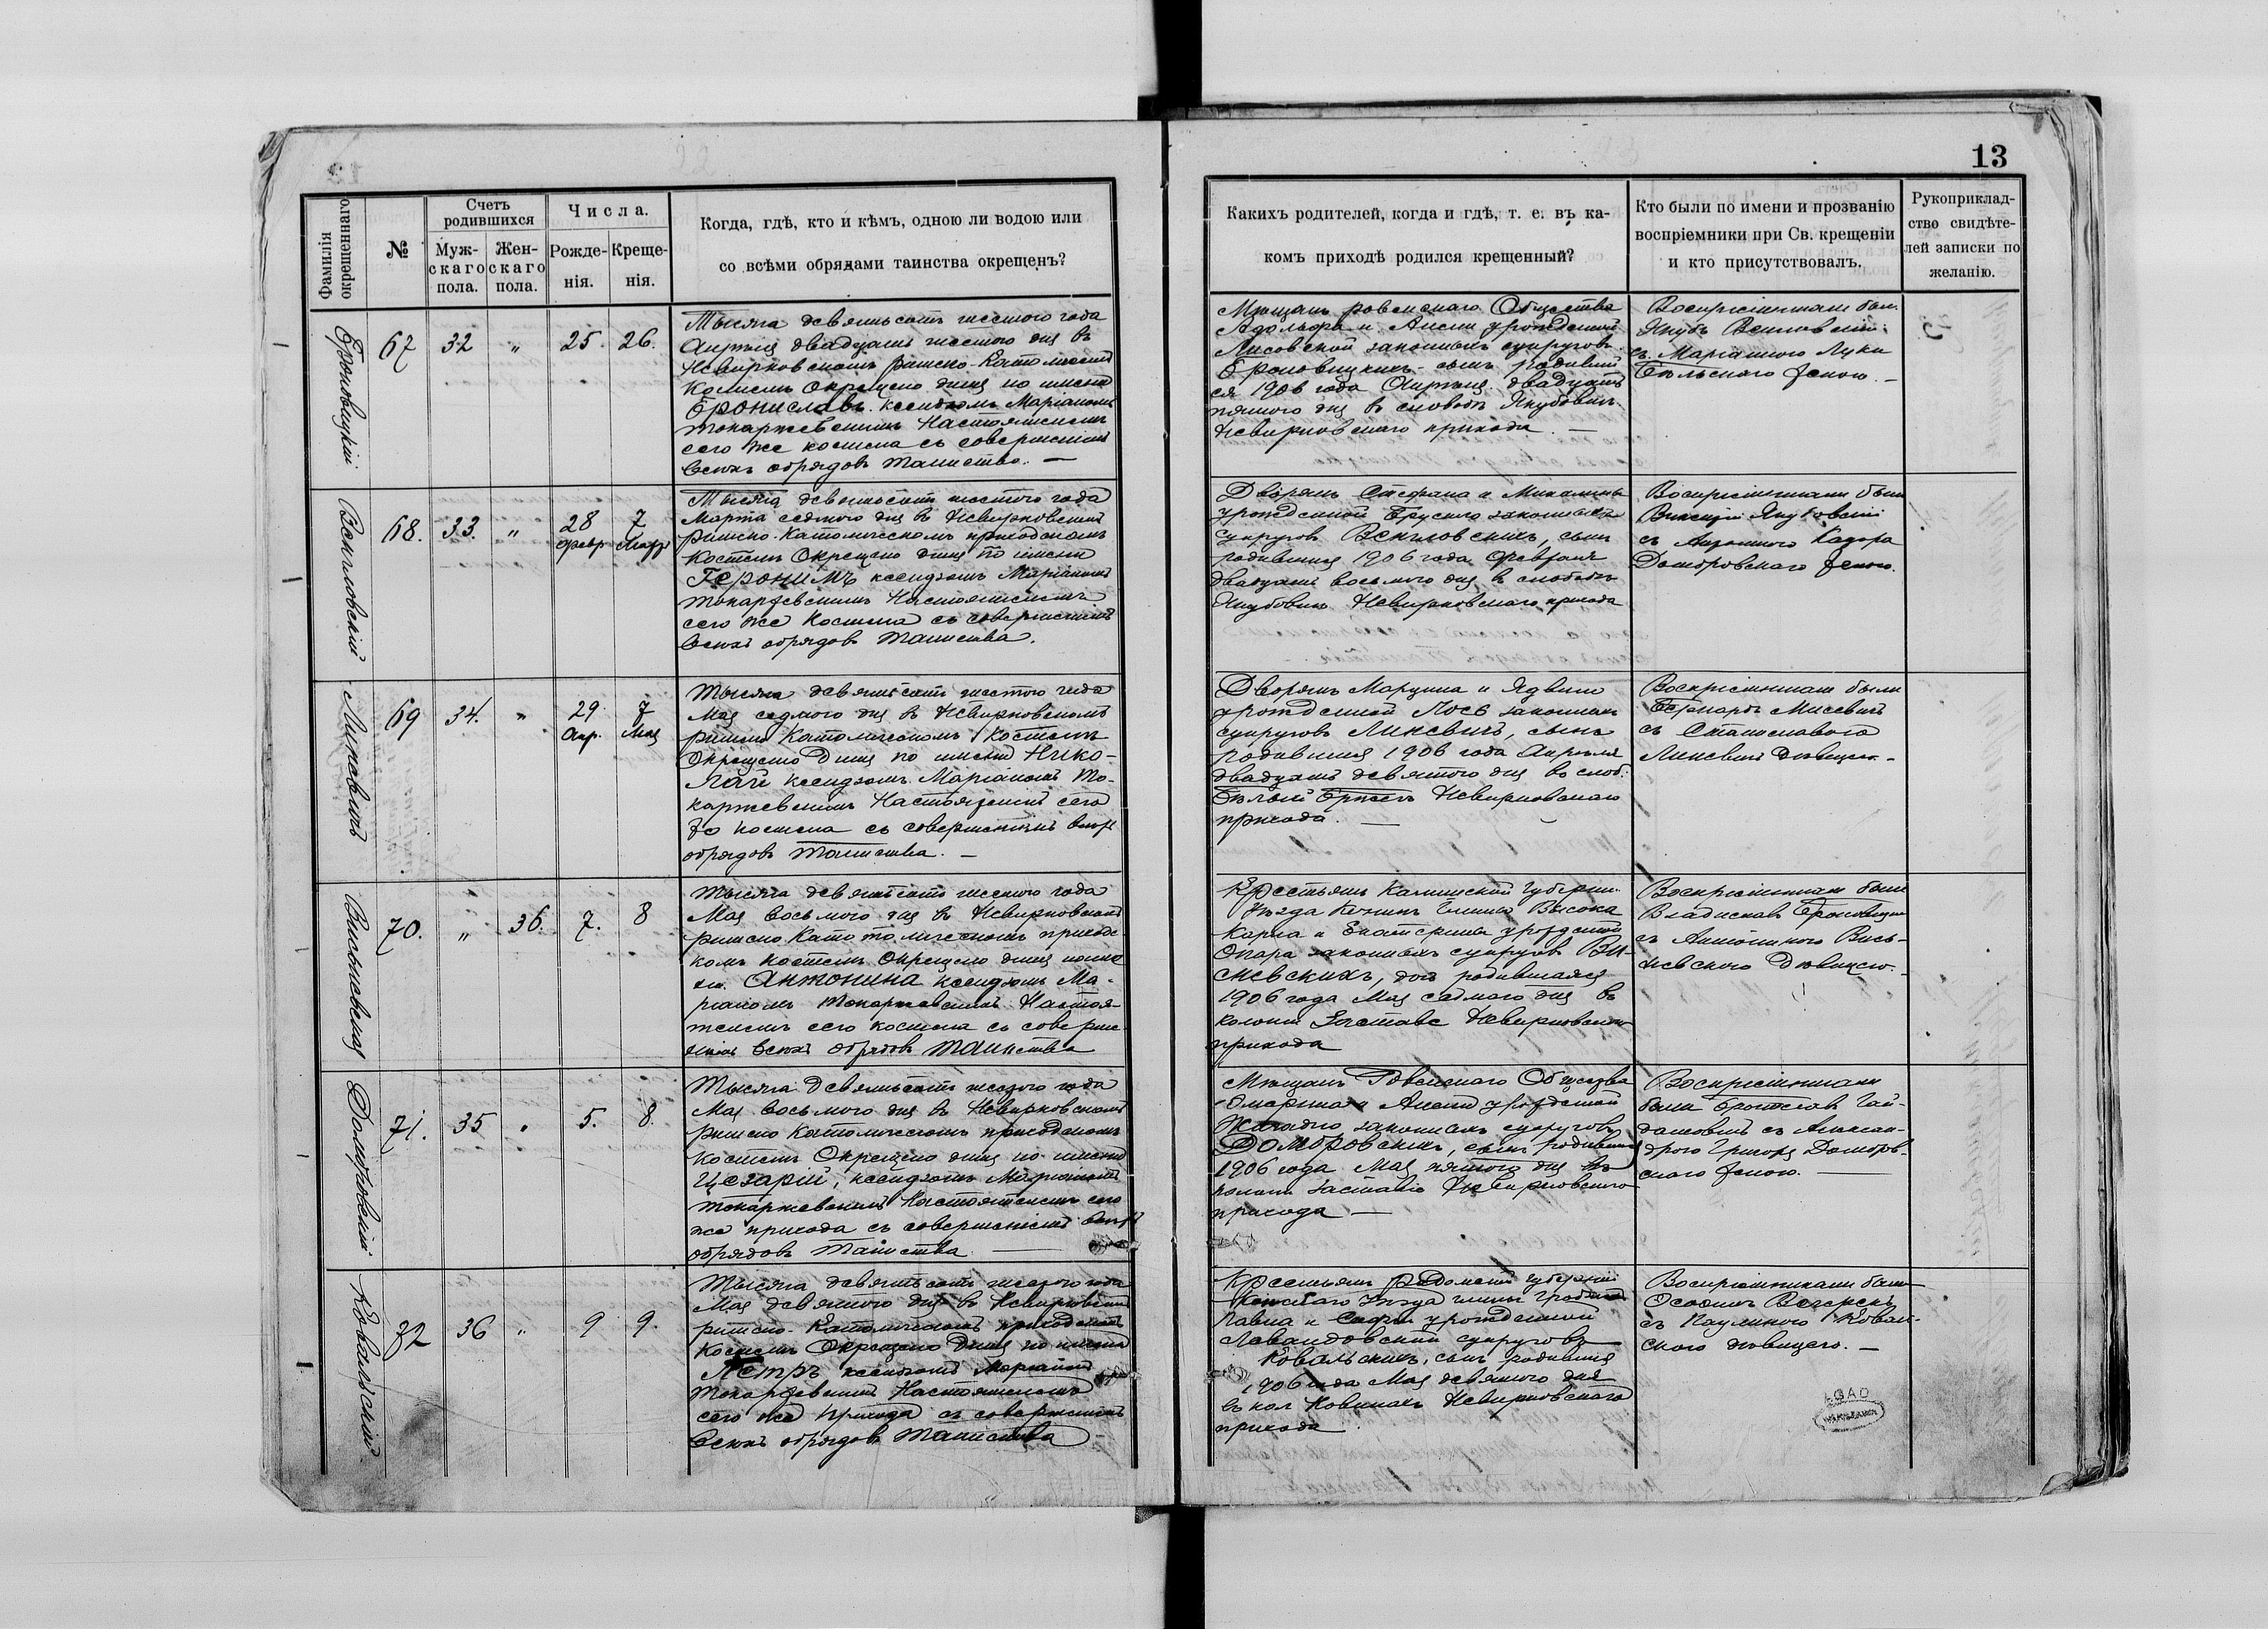 13
Фамилія окрещеннаго
№
Счетъ родившихся
Муж-
скаго
пола.
Жен-
скаго
пола.
Числа.
Рожде-
нія.
Креще-
нія.
Когда, гдѣ, кто и кѣмъ, одною ли водою или
со всѣми обрядами таинства окрещенъ?
Какихъ родителей, когда и гдѣ, т. е. въ ка-
комъ приходѣ родился крещенный?
Кто были по имени и прозванію
воспріемники при Св. крещеніи
и кто присутствовалъ.
Рукоприклад-
ство свидѣте-
лей записки по
желанію.
Броновицкій
67
32
"
25.
26.
Тысяча девятьсотъ шестого года
Апрѣля двадцать шестого дня въ
Невирковскомъ римско-католическомъ
костелѣ окрещено дитя по имени
Брониславъ ксендзомъ Маріаномъ
Токаржевскимъ Настоятелемъ
сего же костела съ совершеніемъ
всѣхъ обрядовъ таинства. —
Мѣщанъ ровенскаго Общества
Адольфа и Анели урожденной
Лисовской законныхъ супруговъ
Броновицкихъ сынъ родивший
ся 1906 года Апрѣля двадцать
пятого дня въ слободѣ Якубовкѣ
Невирковскаго прихода. —
Воспріемниками были
Якубъ Венгловскій
съ Маріанною Луки
Бѣльскаго женою. —
Венгловскій
68.
33.
"
28
февр
7
Март
Тысяча девятьсотъ шестого года
Марта седмого дня въ Невирковскомъ
римско-католическомъ приходскомъ
костелѣ окрещено дитя по имени
Геронимъ ксендзомъ Маріаномъ
Токаржевскимъ Настоятелемъ
сего же костела съ совершеніемъ
всѣхъ обрядовъ таинства.
Дворянъ Стефана и Михалины
урожденной законныхъ
супруговъ Венгловскихъ, сынъ
родившійся 1906 года Февраля
двадцать восьмого дня въ слободѣ
Якубовкѣ Невирковскаго прихода
Воспріемниками были
Викентій Якубовскій
съ
Домбровскаго женою.
Линевичъ
69
34.
"
29
Апр.
7
Мая
Тысяча девятьсотъ шестого года
Мая седмого дня въ Невирковскомъ
римско католическомъ костелѣ
окрещено дитя по имени Нико-
лай ксендзомъ Маріаномъ То-
каржевскимъ Настоятелемъ сего
же костела съ совершеніемъ всѣхъ
обрядовъ таинства. —
Дворянъ Марцина и Ядвиги
урожденной Лось законныхъ
супруговъ Линевичъ, сынъ
родившійся 1906 года Апрѣля
двадцать девятого дня въ слоб.
Бѣлый Невирковскаго
прихода. —
Воспріемниками были
Бернардъ Мисевичъ
съ Станиславою
Линевичъ дѣвицею. —
Висьневская
70.
"
36.
7.
8
Тысяча девятьсотъ шестого года
Мая восьмого дня въ Невирковскомъ
римско католическомъ приходс-
комъ костелѣ окрещено дитя по име
ни Антонина ксендзомъ Ма-
ріаномъ Токаржевскимъ Настоя-
телемъ сего костела съ соверше-
ніемъ всѣхъ обрядовъ таинства
Крестьянъ Калишской губерніи
уѣзда Конинъ гмины Высока
Карла и Екатерины урожденной
Опара законныхъ супруговъ Ви-
сневскихъ, дочь родившаяся
1906 года Мая седмого дня въ
колоніи Заставе Невирковского
прихода
Воспріемниками были
Владиславъ Броновицкій
съ Антониною Вись-
невскою дѣвицею. —
Домбровскій
71.
35
"
5.
8.
Тысяча девятьсотъ шестого года
Мая восьмого дня въ Невирковскомъ
римско католическомъ приходскомъ
костелѣ окрещено дитя по имени
Цезарій, ксендзомъ Маріаномъ
Токаржевскимъ Настоятелемъ сего
же прихода съ совершеніемъ всѣхъ
обрядовъ таинства —
Мѣщанъ Ровенскаго Общества
и Анели урожденной
законныхъ супруговъ
Домбровскихъ, сынъ родившійся
1906 года Мая пятого дня въ
колоніи Заставіе Невирковского
прихода —
Воспріемниками
были Брониславъ Гай-
дамовичъ съ Алексан-
дрою Домбров-
скаго женою. —
Ковальскій
72
36
"
9
9.
Тысяча девятьсотъ шестого года
Мая девятого дня въ Невирковскомъ
римско-католическомъ приходскомъ
костелѣ окрещено дитя по имени
Петръ ксендзомъ Маріаномъ
Токаржевскимъ Настоятелемъ
сего же прихода съ совершеніемъ
всѣхъ обрядовъ таинства
Крестьянъ радомской губерніи
уѣзда гмины
Павла и Софіи урожденной
Левандовской супруговъ
Ковальскихъ, сынъ родившійся
1906 года Мая девятого дня
въ кол Невирковскаго
прихода.
Воспріемниками были
съ Паулиною Коваль-
скою дѣвицею. —